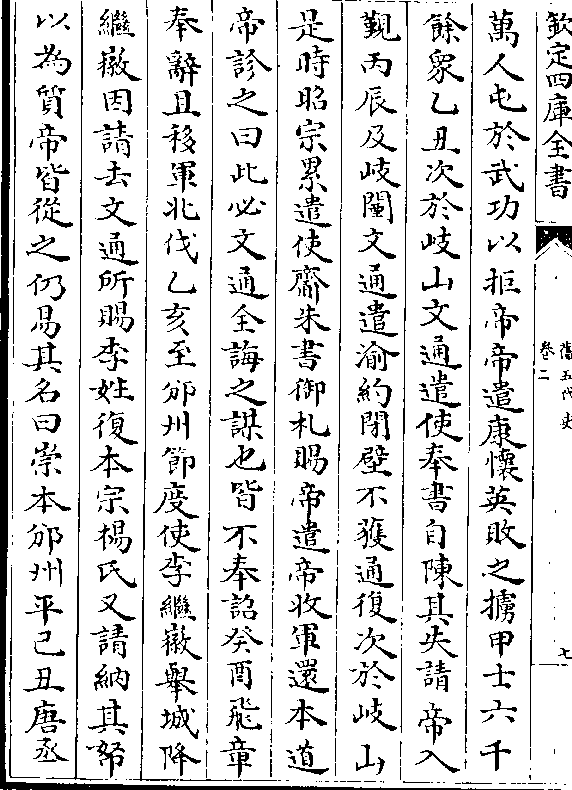 欽定四庫全書
舊五代史
卷二
七
萬人屯於武功以拒帝帝遣康懷英敗之擄甲士六千
餘衆乙丑次於岐山文通遣使奉書自陳其失請帝入
覲丙辰及岐闉文通遣渝約閉壁不獲通復次於岐山
是時昭宗累遣使齎朱書御札賜帝遣帝收軍還本道
帝診之曰此必文通全誨之謀也皆不奉詔癸酉飛章
奉辭且移軍北伐乙亥至邠州節度使李繼徽舉城降
繼徽因請去文通所賜李姓復本宗楊氏又請納其帑
以為質帝皆從之仍易其名曰崇本邠州平己丑唐丞